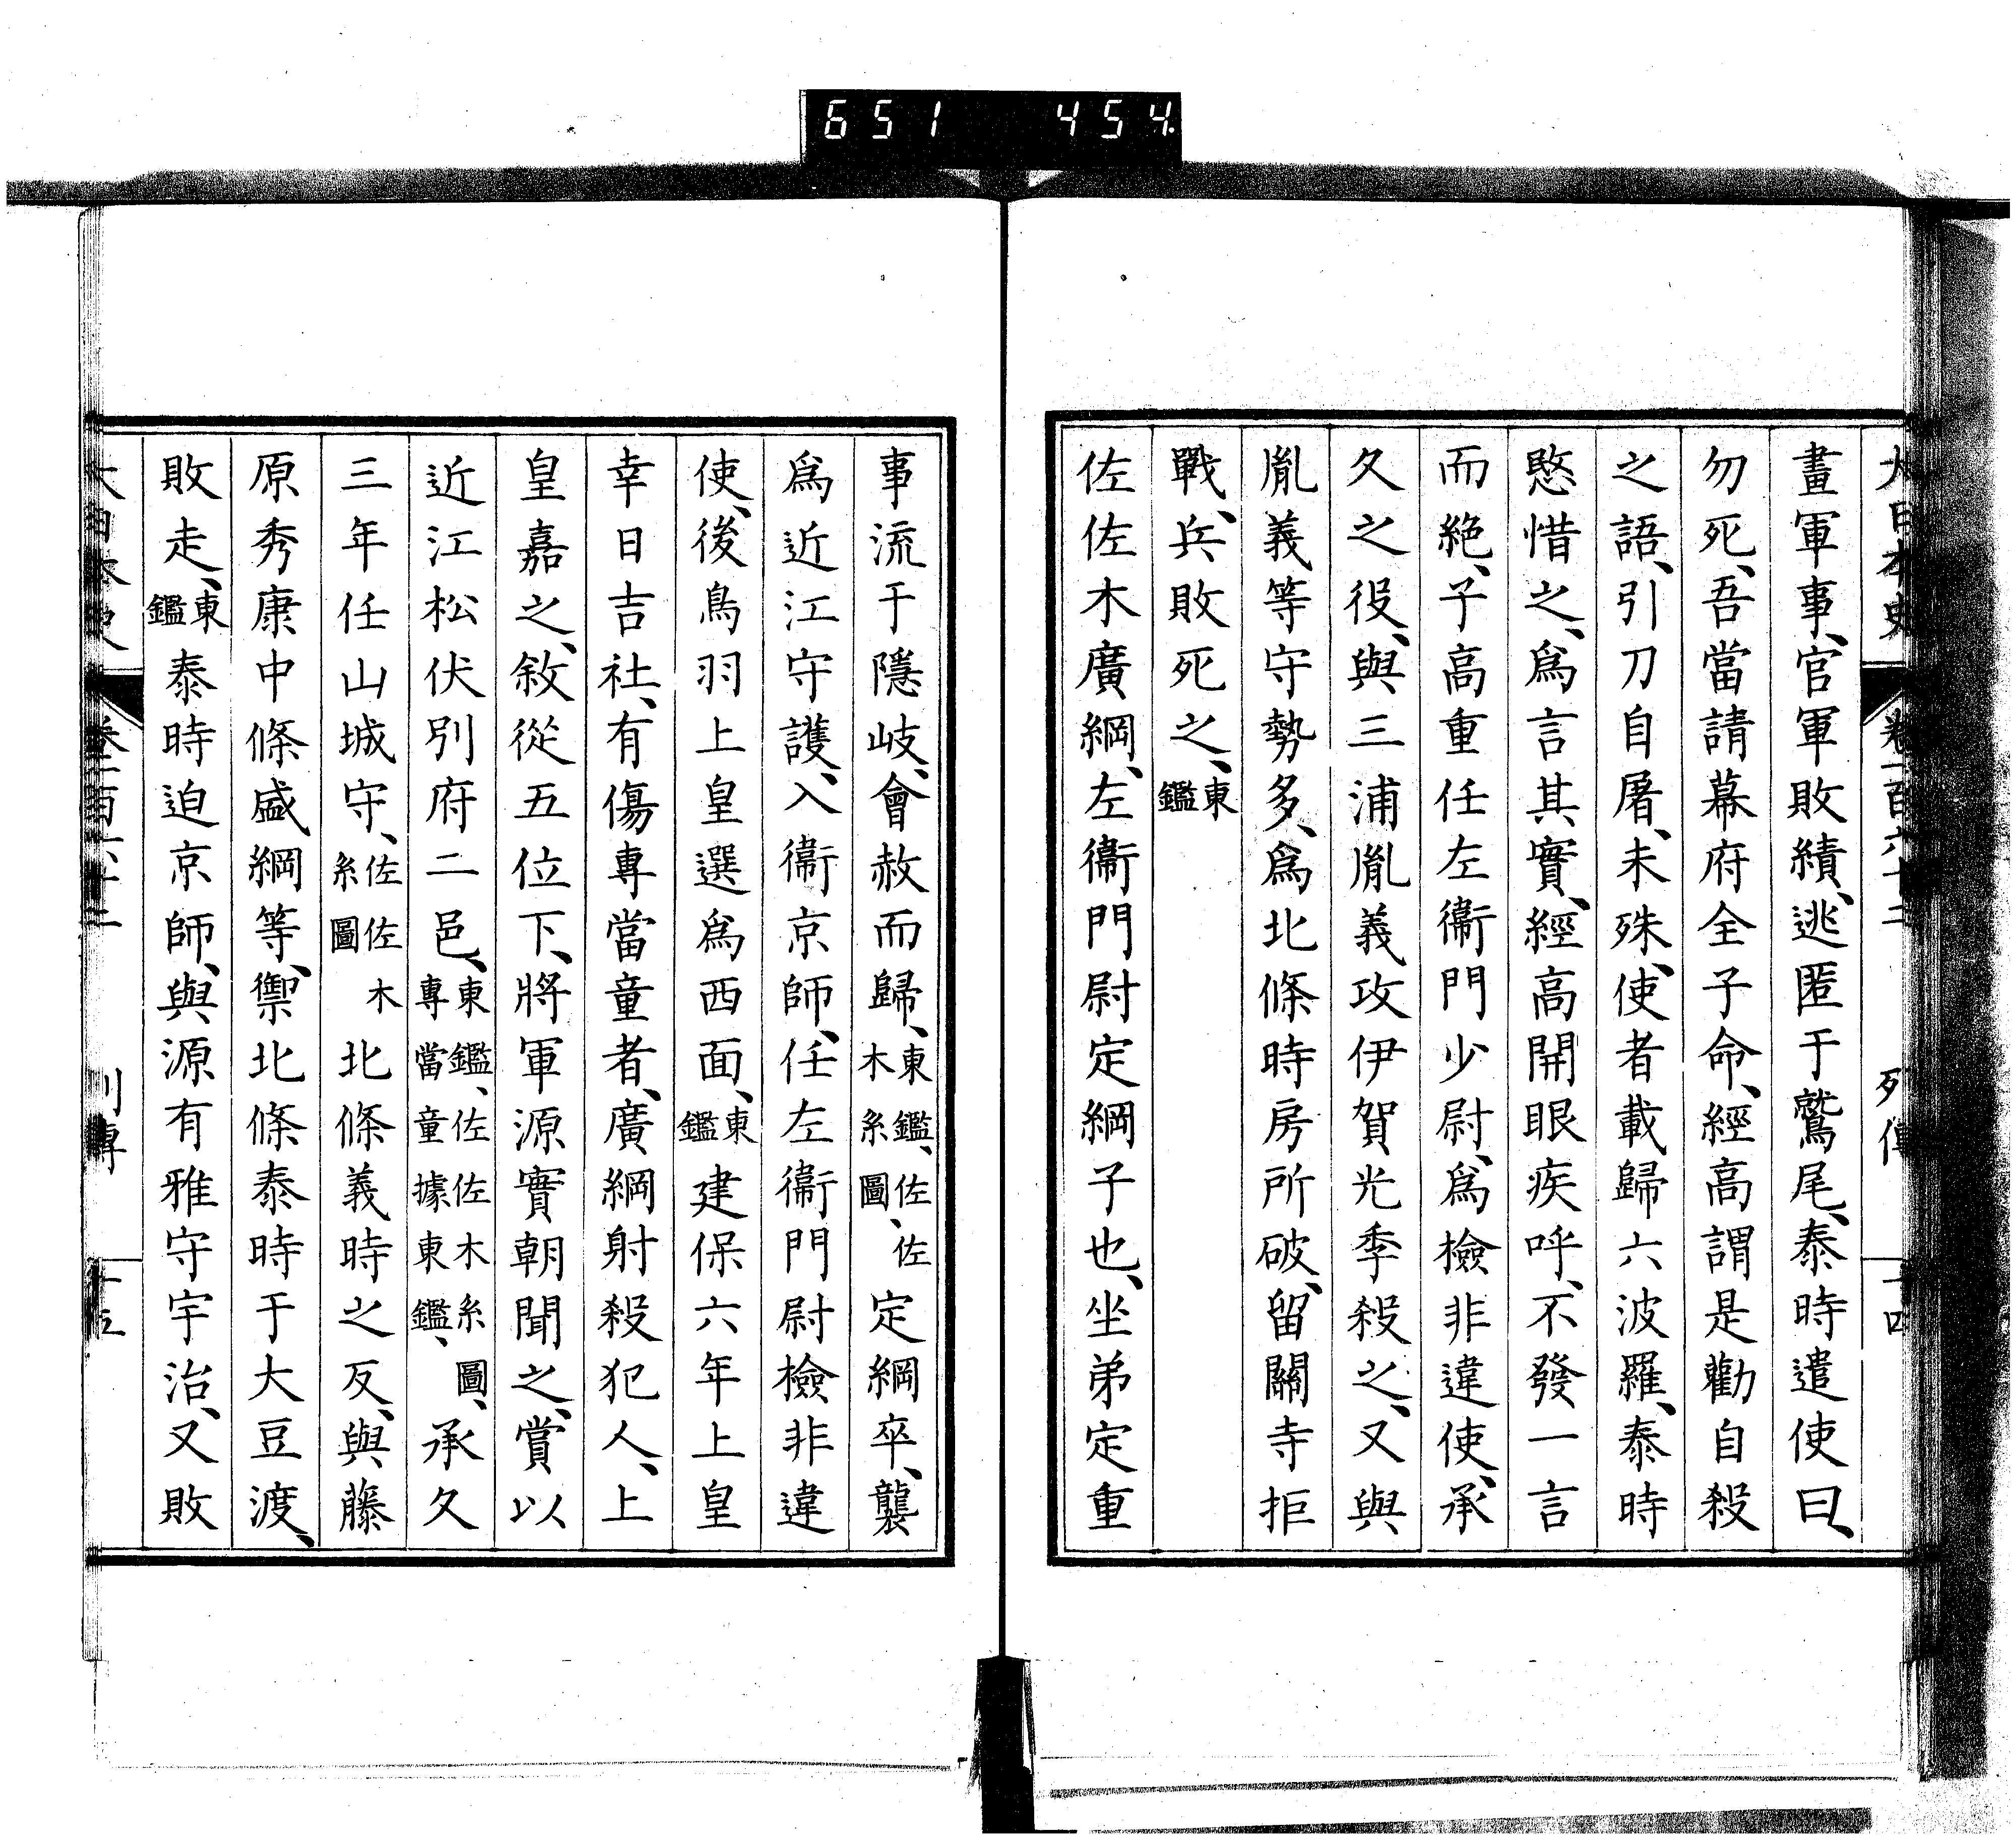 651 454.
大日本史 卷一百六十二 列傳 十四
畫軍事、官軍敗績、逃匿于鷲尾、泰時遣使曰、
勿死、吾當請幕府全子命、經高謂是勸自殺
之語、引刀自屠、未殊、使者載歸六波羅、泰時
愍惜之、爲言其實、經高開眼疾呼、不發一言
而絶、子高重任左衞門少尉、爲檢非違使、承
久之役、與三浦胤義攻伊賀光季殺之、又與
胤義等守勢多、爲北條時房所破、留關寺拒
戰、兵敗死之、東鑑
佐佐木廣綱、左衞門尉定綱子也、坐弟定重
事流于隱岐、會赦而歸、東鑑、佐佐木系圖、定綱卒、襲
爲近江守護、入衞京師、任左衞門尉檢非違
使、後鳥羽上皇選爲西面、東鑑建保六年上皇
幸日吉社、有傷專當童者、廣綱射殺犯人、上
皇嘉之、敘從五位下、將軍源實朝聞之、賞以
近江松伏別府二邑、東鑑、佐佐木系圖、專當童據東鑑、承久
三年任山城守、佐佐木系圖北條義時之反、與藤
原秀康中條盛綱等、禦北條泰時于大豆渡、
敗走、東鑑泰時迫京師、與源有雅守宇治、又敗
大日本史 卷一百六十二 列傳 十五